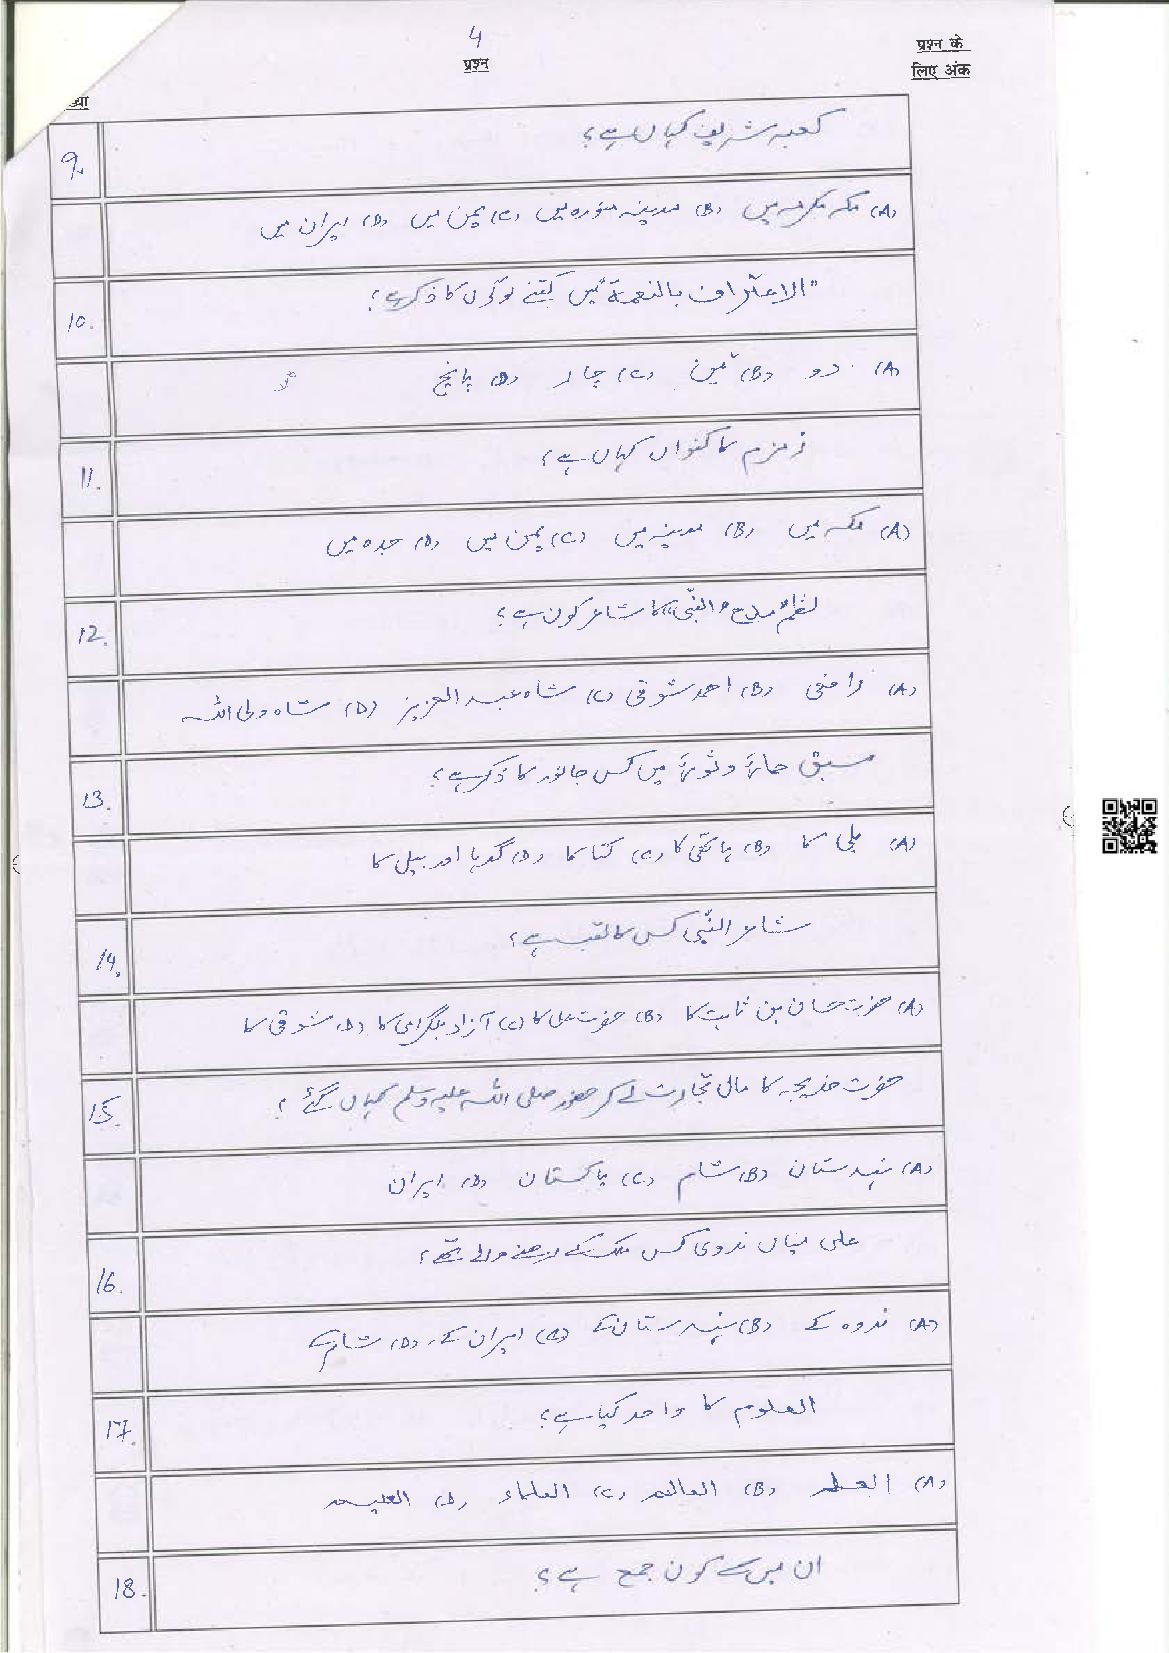 4
प्रश्न
प्रश्न के
लिए अंक
ख्या
9.
کعبہ شریف کہاں ہے؟
(A) مکہ مکرمہ میں (B) مدینہ منورہ میں (C) یمن میں (D) ایران میں
10.
"الاعتراف بالنعمة" میں کتنے لوگوں کا ذکر ہے؟
(A) دو (B) تین (C) چار (D) پانچ
11.
زمزم کا کنواں کہاں ہے؟
(A) مکہ میں (B) مدینہ میں (C) یمن میں (D) جدہ میں
12.
نظم "مدح النبّی" کا شاعر کون ہے؟
(A) رافعی (B) احمد شوقی (C) شاہ عبد العزیز (D) شاہ ولی اللہ
13.
سبق حمارٌ و ثورٌ میں کس جانور کا ذکر ہے؟
(A) بلی کا (B) ہاتھی کا (C) کتا کا (D) گدہا اور بیل کا
14.
شاعر النّبی کس کا لقب ہے؟
(A) حضرت حسان بن ثابت کا (B) حضرت علی کا (C) آزاد بلگرامی کا (D) شوقی کا
15.
حضرت خدیجہ کا مال تجارت لے کر حضور صلی اللہ علیہ وسلم کہاں گئے؟
(A) ہندستان (B) شام (C) پاکستان (D) ایران
16.
علی میاں ندوی کس ملک کے رہنے والے تھے؟
(A) ندوہ کے (B) ہندستان کے (C) ایران کے (D) شام کے
17.
العلوم کا واحد کیا ہے؟
(A) العلم (B) العالم (C) العلماء (D) العلیم
18.
ان میں سے کون جمع ہے؟